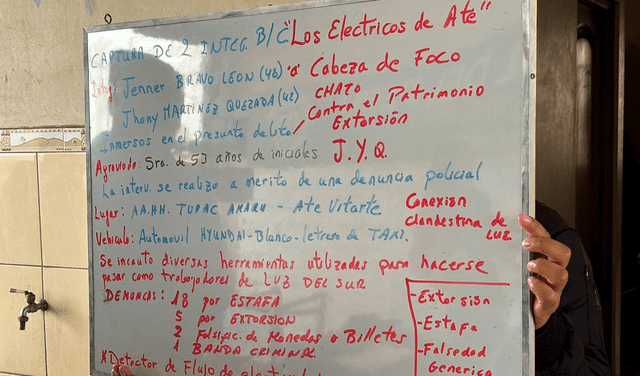 CAPTURA DE 2 INTEG. B/C "Los Electricos de Ate"
Integ: Jenner BRAVO LEON (46) "a" Cabeza de Foco
Jhony MARTINEZ QUEZADA (42) CHATO
Inmersos en el presunto delito / Contra el Patrimonio
Extorsión
Agraviado: Sra. de 53 años de iniciales J.Y.Q.
La interv. se realizo a merito de una denuncia policial
Lugar: AA.HH. TUPAC AMARU - Ate Vitarte
Conexion
clandestina de
LUZ
Vehiculo: Automovil HYUNDAI-Blanco-letrero de TAXI.
Se incauto diversas herramientas utilizadas para hacerse
pasar como trabajadores de LUZ DEL SUR
DENUNCIAS: 18 por ESTAFA
5 por EXTORSION
2 Falsific. de Monedas o Billetes
1 BANDA CRIMINAL
-Extorsión
-Estafa
-Falsedad
Generica
*Detector de Flujo de